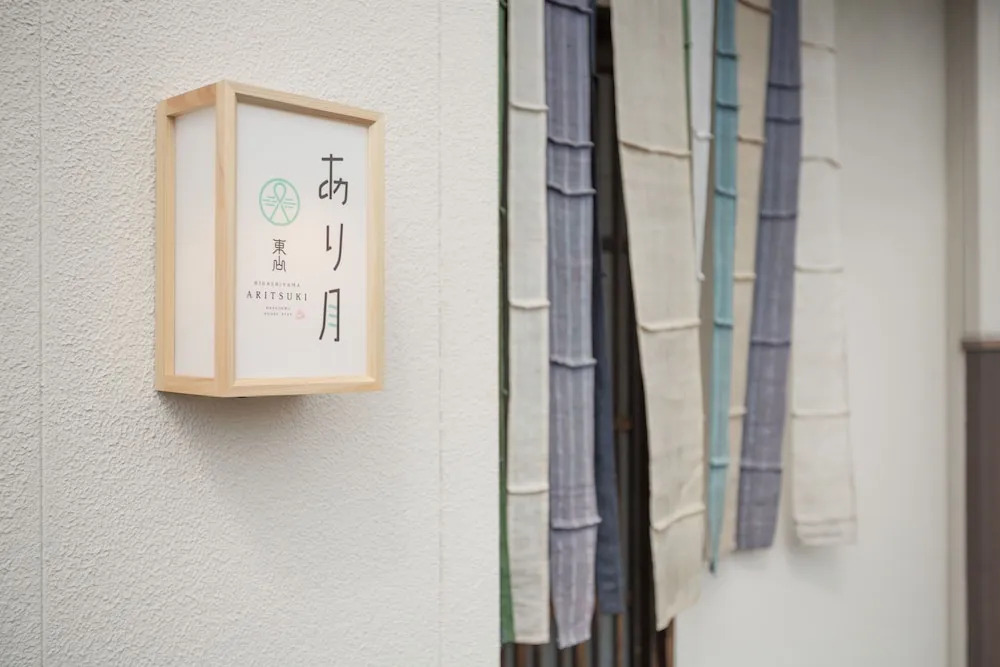 あり月
東山
HIGASHIYAMA
ARITSUKI